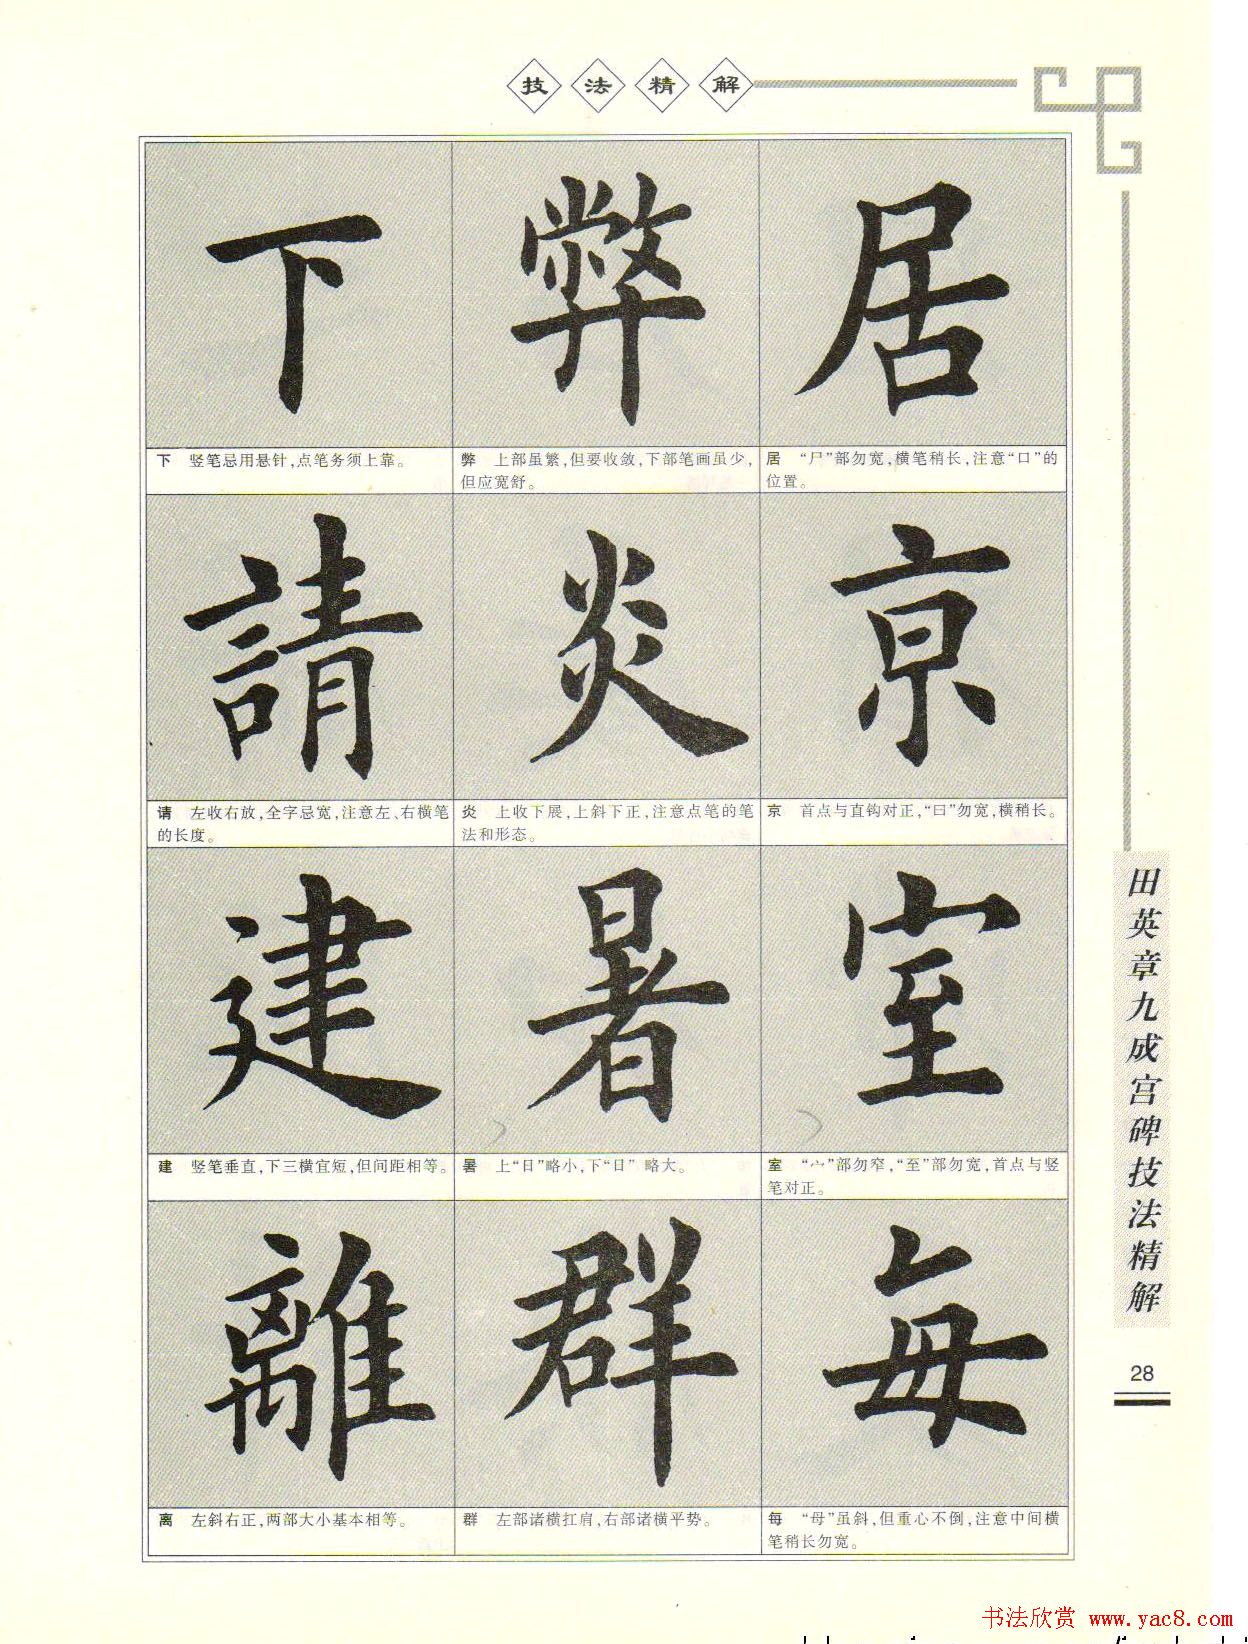 技法精解
下
弊
居
下 竖笔忌用悬针,点笔务须上靠。
弊 上部虽繁,但要收敛,下部笔画虽少,
但应宽舒。
居 “尸”部勿宽,横笔稍长,注意“口”的
位置。
請
炎
京
请 左收右放,全字忌宽,注意左、右横笔
的长度。
炎 上收下展,上斜下正,注意点笔的笔
法和形态。
京 首点与直钩对正,“曰”勿宽,横稍长。
建
暑
室
建 竖笔垂直,下三横宜短,但间距相等。
暑 上“日”略小,下“日” 略大。
室 “宀”部勿窄,“至”部勿宽,首点与竖
笔对正。
離
群
每
离 左斜右正,两部大小基本相等。
群 左部诸横扛肩,右部诸横平势。
每 “母”虽斜,但重心不倒,注意中间横
笔稍长勿宽。
田英章九成宫碑技法精解
28
书法欣赏 www.yac8.com